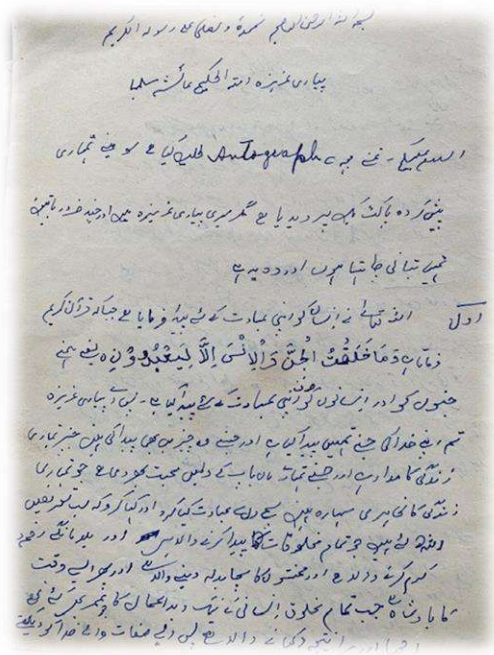 بسم اللہ الرحمن الرحیم نحمدہ و نصلی علی رسولہ الکریم
پیاری عزیزہ امۃ الحکیم عائشہ سلمہا
السلام علیکم۔ تم نے مجھ سے Autograph طلب کیا ہے سو میں نے تمہاری
پیش کردہ پاکٹ بک پر دیدیا ہے مگر میری پیاری عزیزہ میں اور چند ضرور باتیں
تمہیں بتانی چاہتا ہوں اور وہ یہ ہے
اول اللہ تعالیٰ نے انسان کو اپنی عبادت کے لئے پیدا فرمایا ہے جیسا کہ قرآن کریم
فرماتا ہے وَمَا خَلَقْتُ الْجِنَّ وَالْاِنْسَ اِلَّا لِيَعْبُدُوْنِ یعنی ہم نے
جنوں کو اور انسانوں کو اپنی عبادت کے لئے پیدا کیا ہے۔ پس اے پیاری عزیزہ
تم اپنے خدا کی جس نے تمہیں پیدا کیا ہے اور جس نے وہ چیزیں بھی پیدا کی ہیں جن پر تمہاری
زندگی کا مدار ہے اور جس نے تمہارے ماں باپ کے دل میں محبت بھر دی ہے جو تمہاری
زندگی کا ظاہری سہارہ ہیں سچے دل سے عبادت کیا کرو اور کہا کرو کہ سب تعریفیں
اللہ کے لئے ہیں جو تمام مخلوقات کا پیدا کرنے والا ہے اور بلا مانگے رحم و
کرم کرنے والا ہے اور محنتوں کا سچا بدلہ دینے والا ہے اور پھر ایسے وقت
کا بادشاہ ہے جب تمام مخلوق انسانی نے نیک و بد اعمال کا
اچھا اور برا نتیجہ دکھانے والا ہے پس صفات والے خدا کو